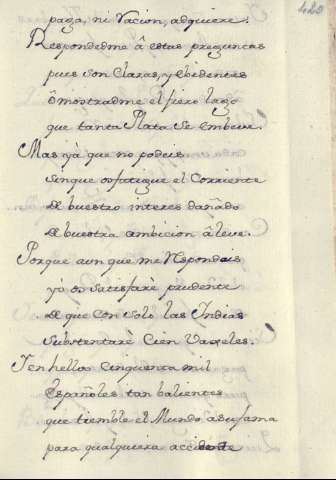 423
paga, ni Racion, adquiere.
Respondedme â estas preguntas
pues son Claras, y ebidentes
ô mostradme el fiero lago
que tanta Plata se embeve.
Mas yà que no podeis
sin que os fatigue el Corriente
de buestro interes dañado
de buestra ambicion âleve.
Porque aun que me respondais
yô os satisfarè prudente
de que con solo las Indias
substentarè Cien Vaxeles.
Ten hellos cinquenta mil
Españoles tan balientes
que tiemble el Mundo a su fama
para qualquiera accidente